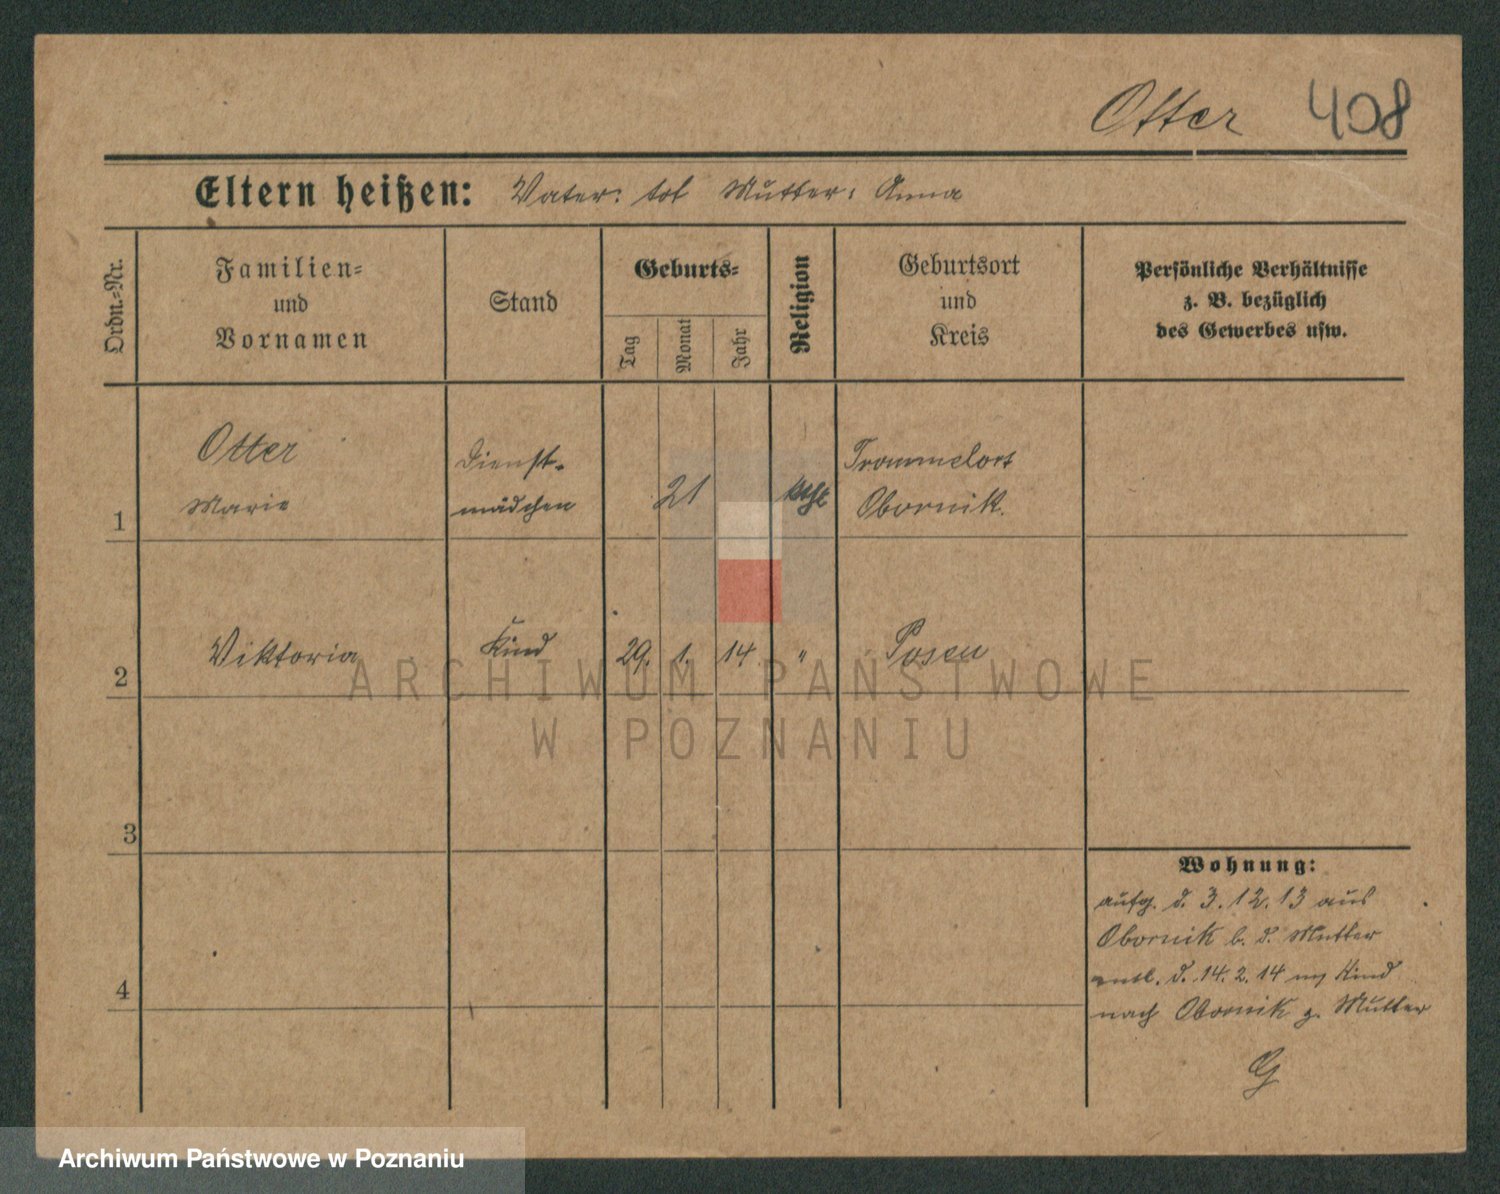 Otter 408
Eltern heißen: Vater: tot Mutter: Anna
Ordn.-Nr.
Familien-
und
Vornamen
Stand
Geburts-
Tag
Monat
Jahr
Religion
Geburtsort
und
Kreis
Persönliche Verhältnisse
z. B. bezüglich
des Gewerbes usw.
1
Otter
Marie
Dienst-
mädchen
21
kath
Trommelort
Obornik.
2
Viktoria
Kind
29. 1. 14
"
Posen
3
4
Wohnung:
aufg. d. 3. 12. 13 aus
Obornik b. d. Mutter
entl. d. 14. 2. 14 m Kind
nach Obornik z. Mutter
G
ARCHIWUM PAŃSTWOWE
W POZNANIU
Archiwum Państwowe w Poznaniu